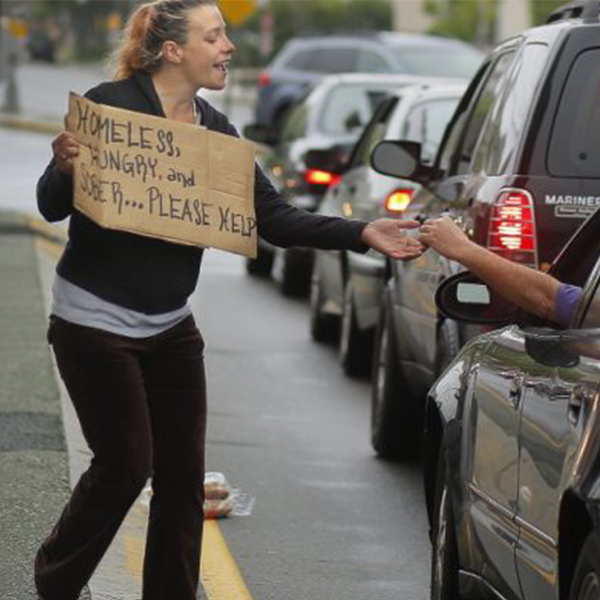 HOMELESS,
HUNGRY, and
SOBER...PLEASE HELP
MARINER